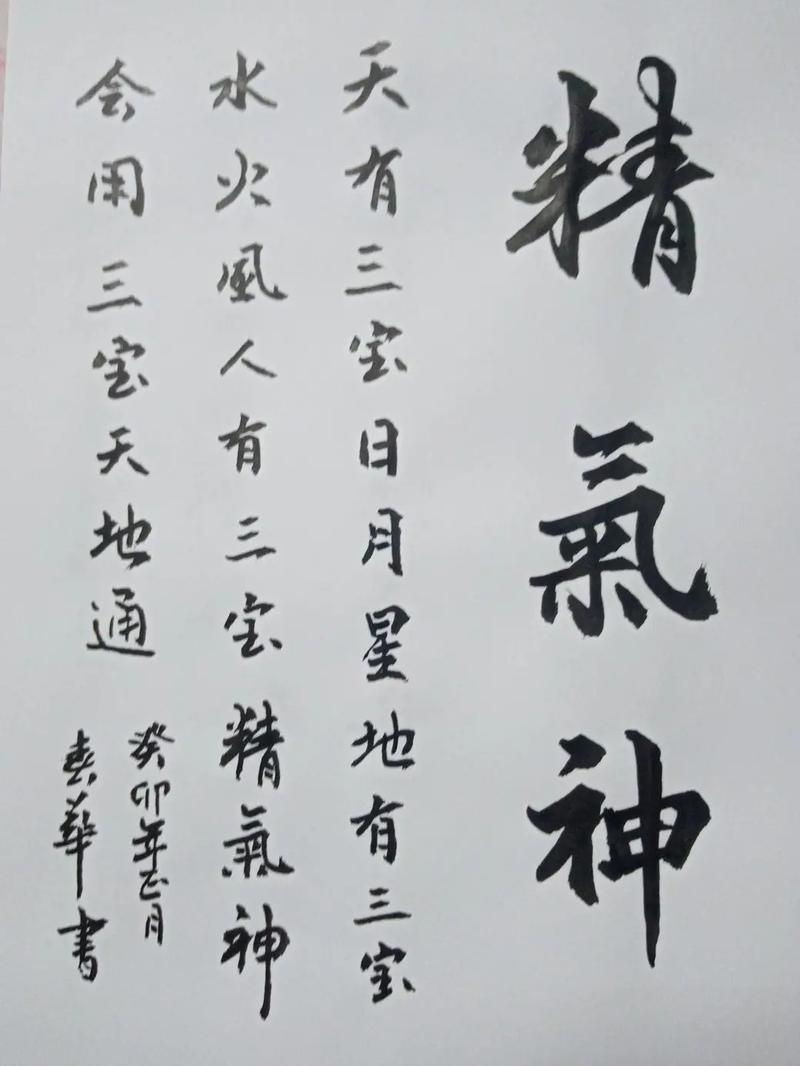 精氣神
天有三宝日月星地有三宝
水火風人有三宝精氣神
会用三宝天地通
癸卯年正月
春華書